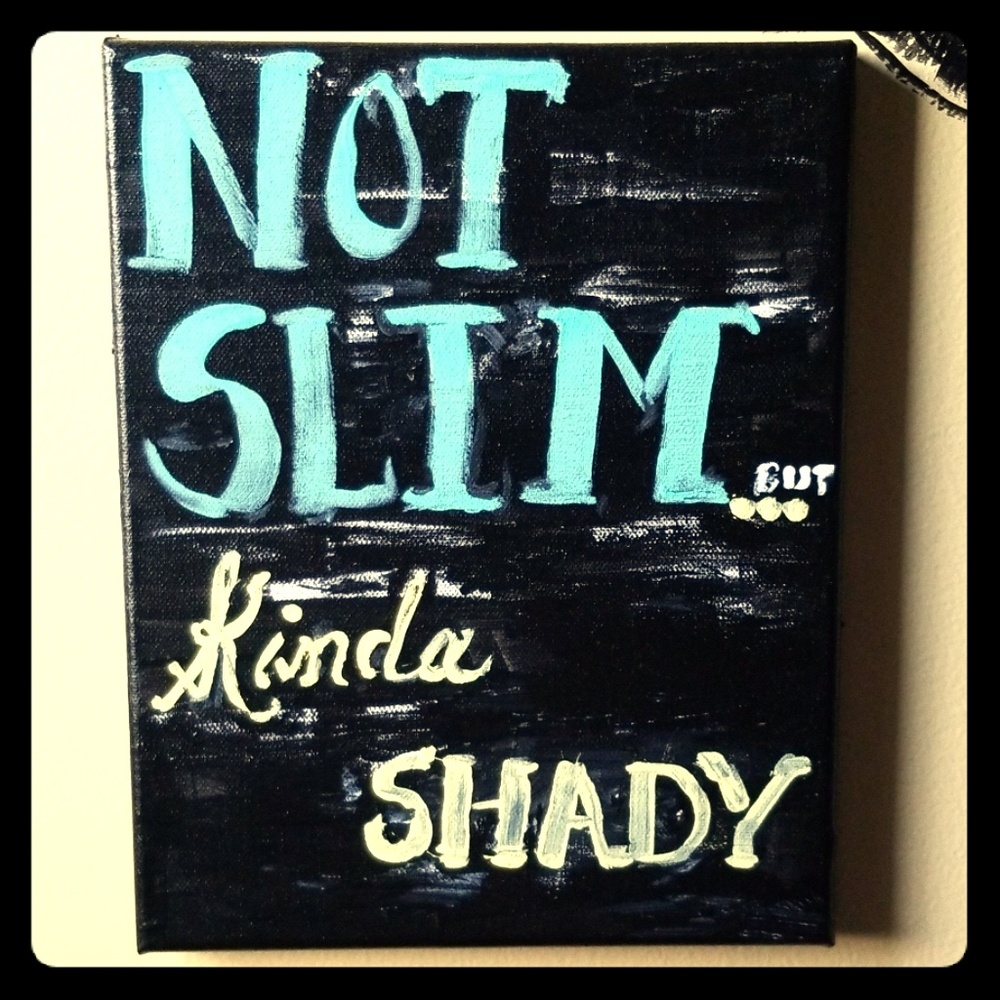 NOT
SLIM... BUT
Kinda
SHADY